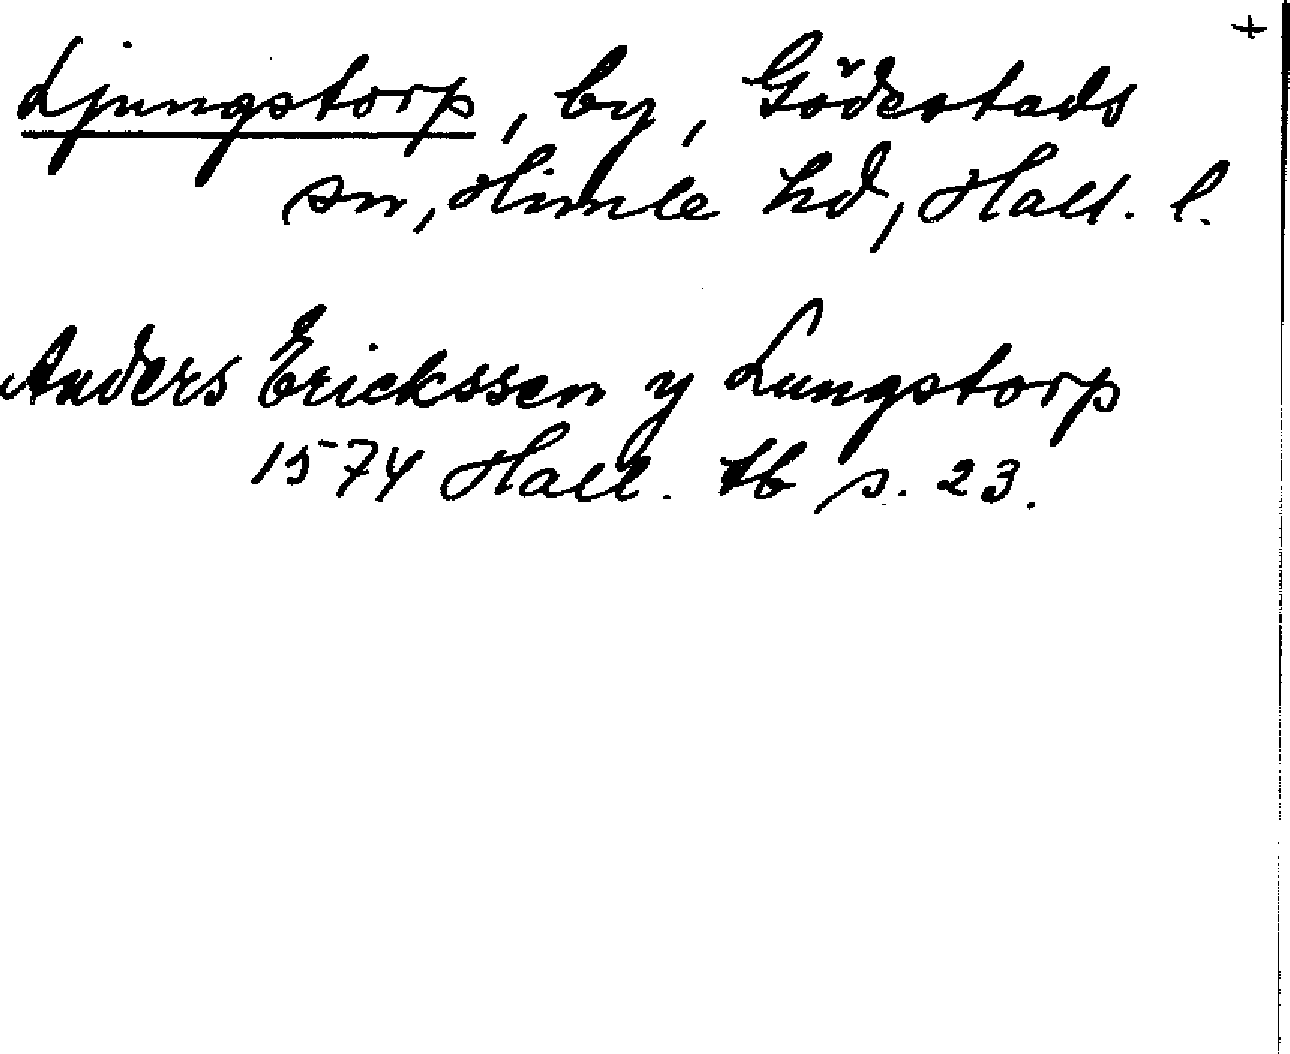 +
Ljungstorp, by, Gödestads
sn, Himle hd, Hall. l.
Anders Erickssen y Lungstorp
1574 Hall. tb s. 23.